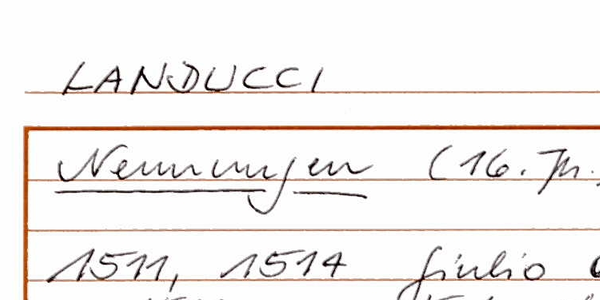 LANDUCCI
Nennungen (16. Jh.
1511, 1514 Giulio